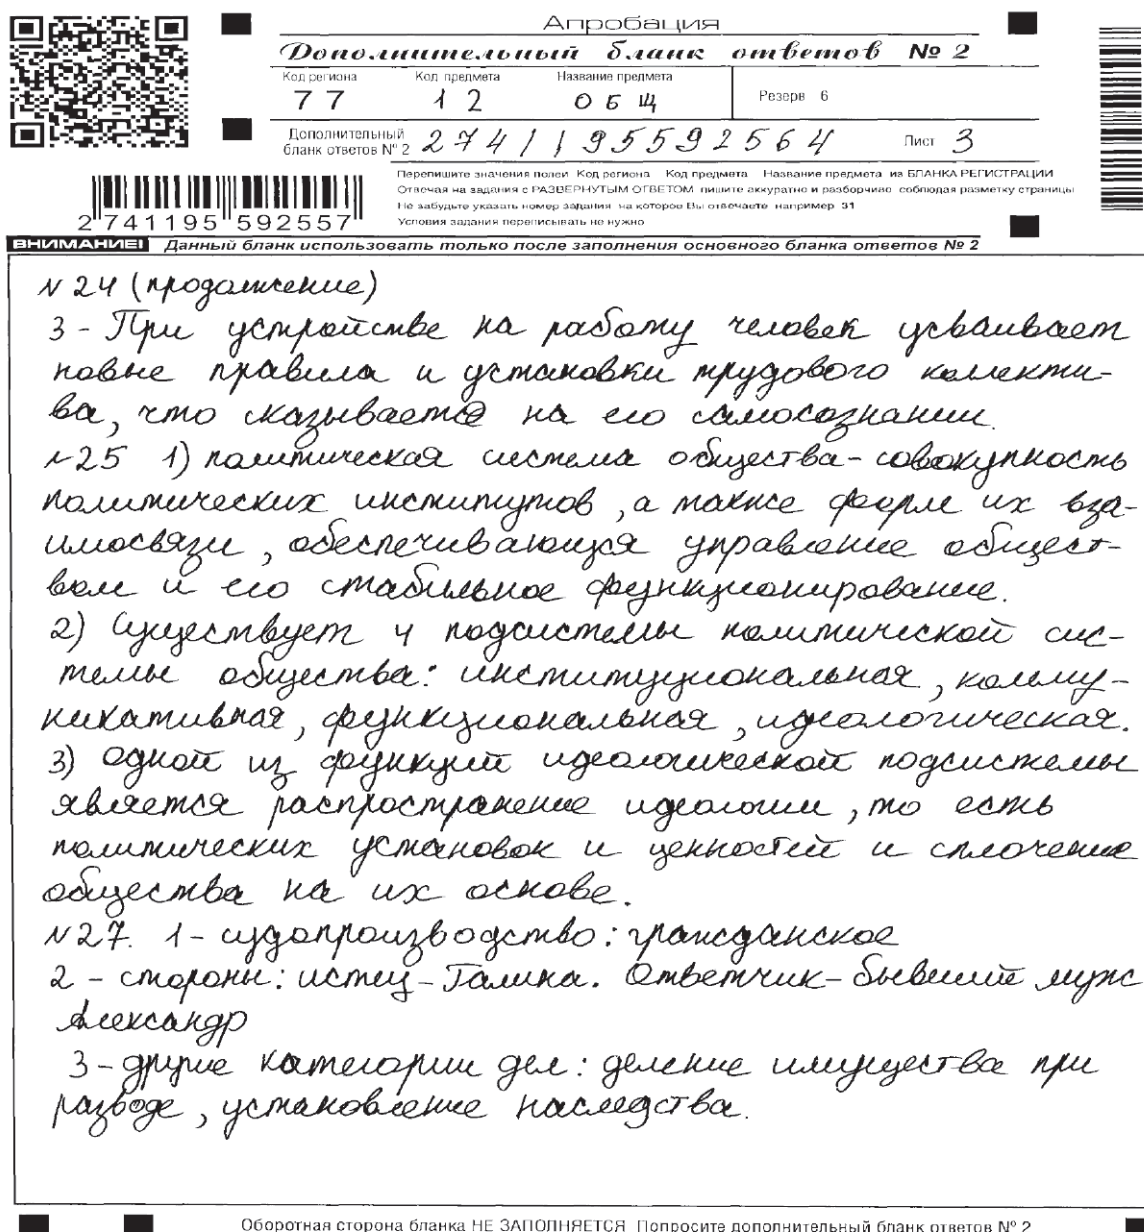 Апробация
Дополнительный бланк ответов № 2
Код региона Код предмета Название предмета
77 12 ОБЩ Резерв 6
Дополнительный бланк ответов № 2 2741195592564 Лист 3
Перепишите значения полей Код региона Код предмета Название предмета из БЛАНКА РЕГИСТРАЦИИ
Отвечая на задания с РАЗВЕРНУТЫМ ОТВЕТОМ пишите аккуратно и разборчиво соблюдая разметку страницы
Не забудьте указать номер задания на которое Вы отвечаете например 31
Условия задания переписывать не нужно
2 741195 592557
ВНИМАНИЕ! Данный бланк использовать только после заполнения основного бланка ответов № 2
№ 24 (продолжение)
3 - При устройстве на работу человек усваивает
новые правила и установки трудового коллекти-
ва, что сказывается на его самосознании.
№25 1) политическая система общества - совокупность
политических институтов, а также форм их вза-
имосвязи, обеспечивающая управление общест-
вом и его стабильное функционирование.
2) Существует 4 подсистемы политической сис-
темы общества: институциональная, комму-
никативная, функциональная, идеологическая.
3) Одной из функций идеологической подсистемы
является распространение идеологии, то есть
политических установок и ценностей и сплочение
общества на их основе.
№27. 1 - судопроизводство: гражданское
2 - стороны: истец - Галина. Ответчик - бывший муж
Александр
3 - другие категории дел: деление имущества при
разводе, установление наследства.
Оборотная сторона бланка НЕ ЗАПОЛНЯЕТСЯ Попросите дополнительный бланк ответов № 2